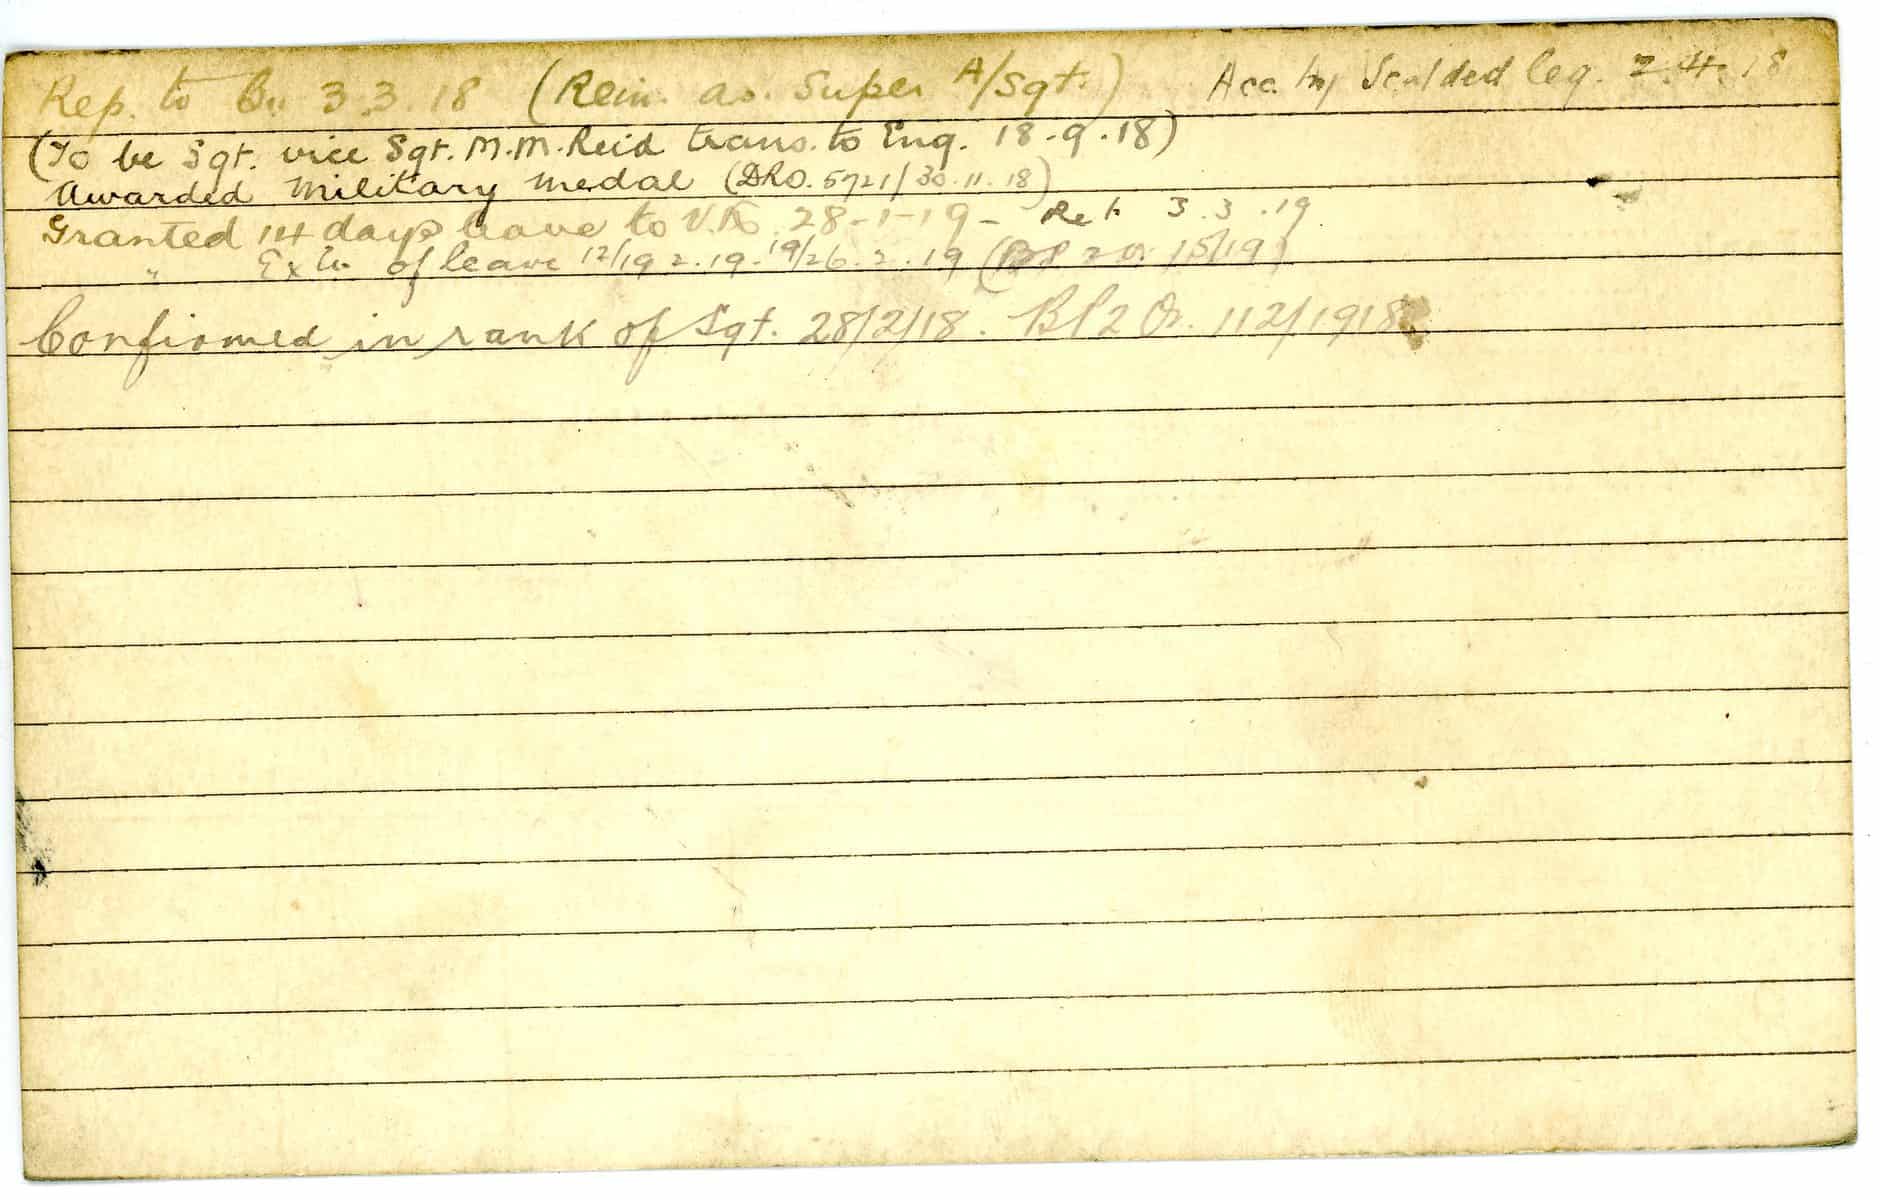 Rep. to Bn 3.3.18 (Rein. as. Super A/Sgt.) Acc. Inj Scalded leg. 2.4.18
(To be Sgt. vice Sgt. M.M. Reid trans. to Eng. 18.9.18)
Awarded Military Medal (DRO. 5721/30.11.18)
Granted 14 days leave to U.K. 28-1-19- Ret 3.3.19
" Extn of leave 12/19.2.19. 19/26.2.19 (Pt 2 O. 15/19)
Confirmed in rank of Sgt. 28/2/18. Pt 2 Or. 112/1918